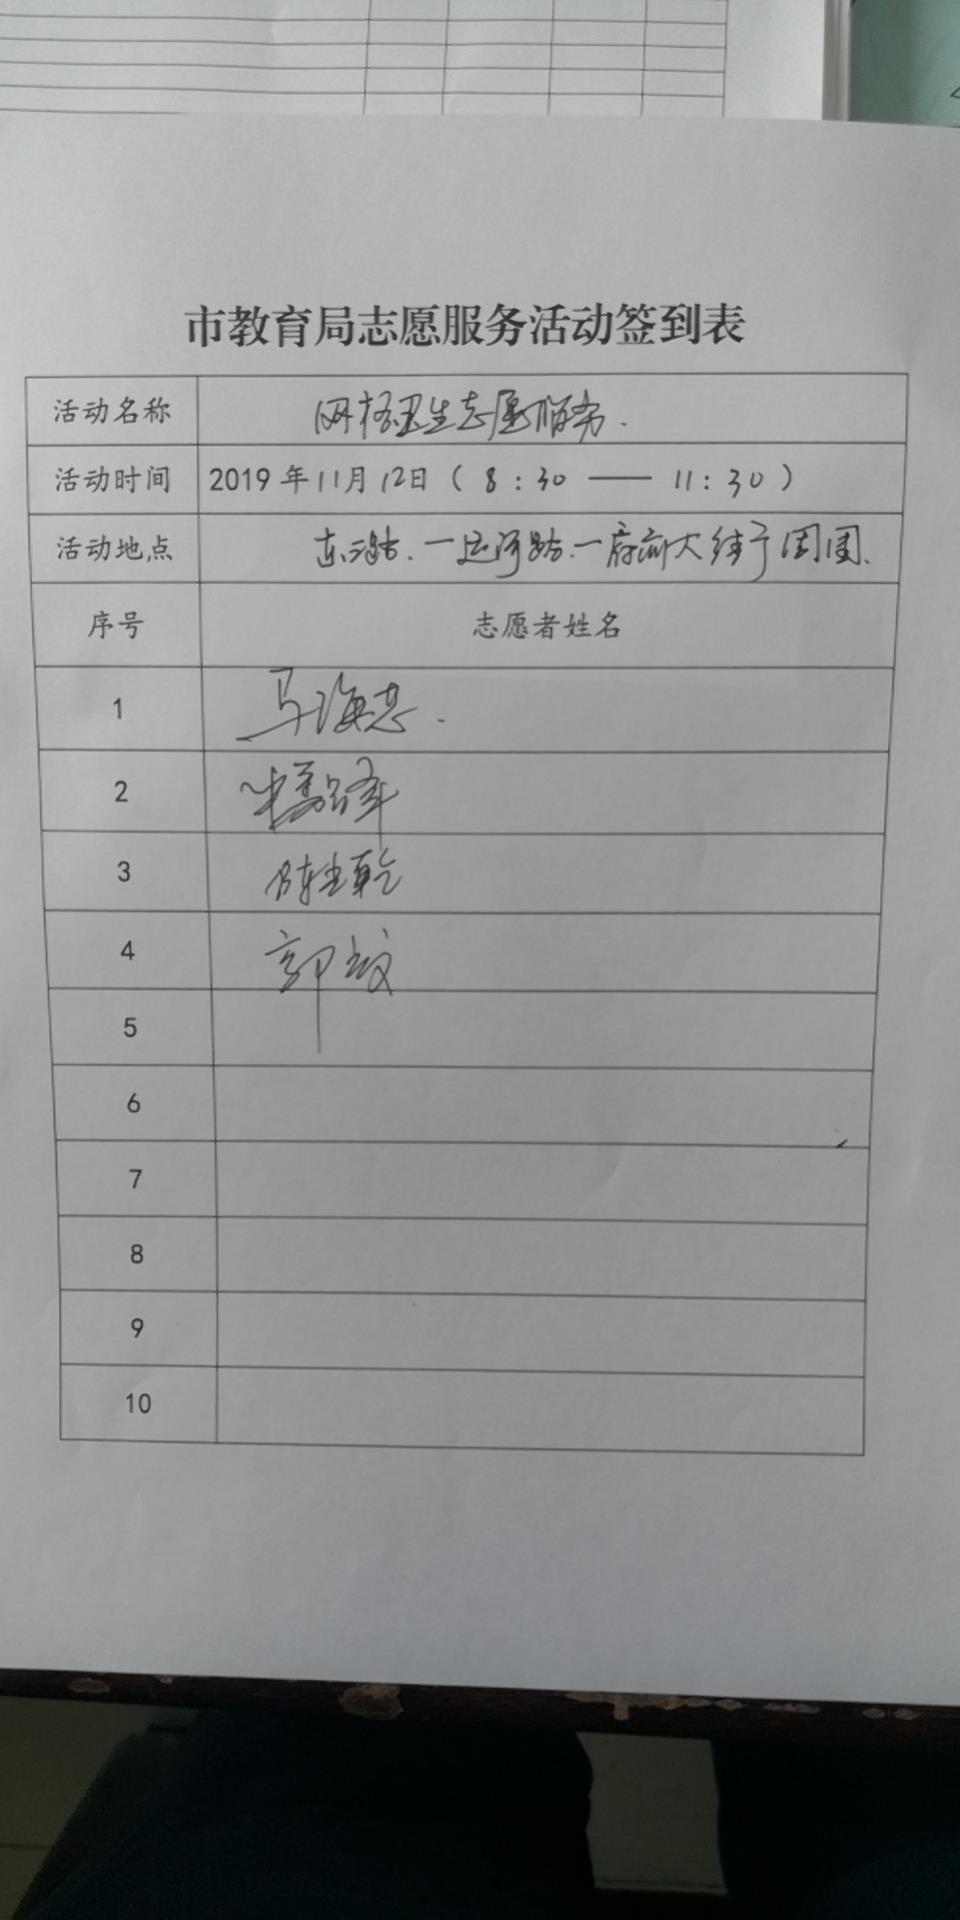 市教育局志愿服务活动签到表
活动名称 网格卫生志愿服务.
活动时间 2019年11月12日（8:30——11:30）
活动地点 一运河路.一府前大街周围.
序号 志愿者姓名
1 马海忠.
2
3 陈
4 郭
5
6
7
8
9
10